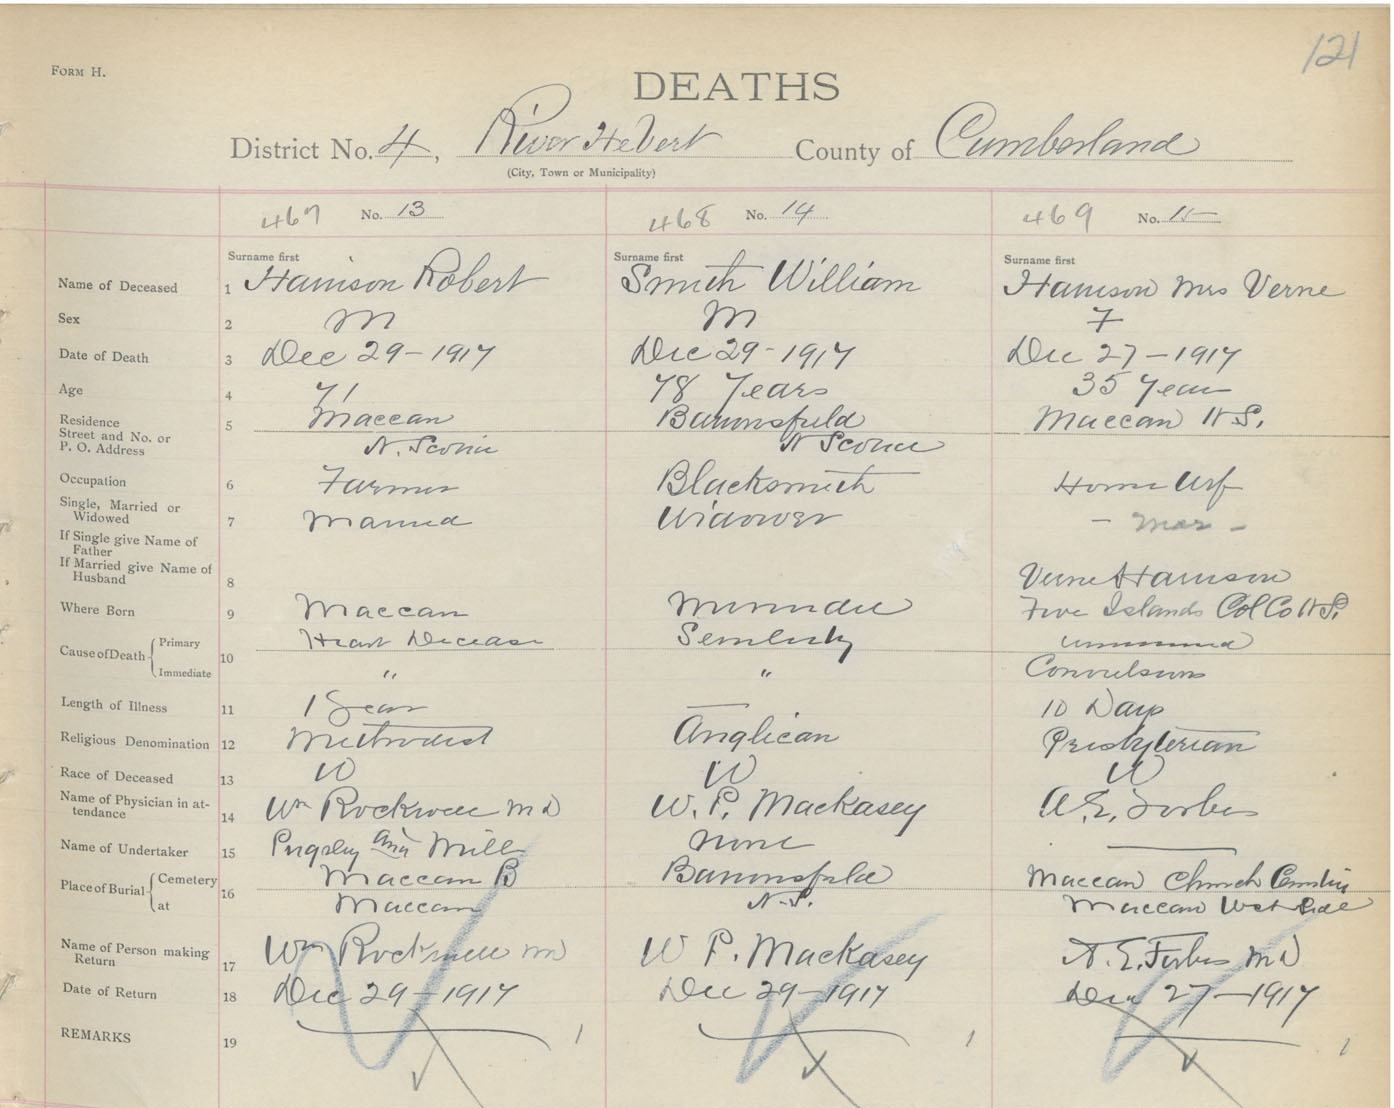 121
FORM H.
DEATHS
District No. 4, River Hebert County of Cumberland
(City, Town or Municipality)
467 No. 13 468 No. 14 469 No. 15
Surname first Surname first Surname first
Name of Deceased 1 Harrison Robert Smith William Harrison Mrs Verne
Sex 2 M M F
Date of Death 3 Dec 29-1917 Dec 29-1917 Dec 27-1917
Age 4 71 78 Years 35 Years
Residence Street and No. or P. O. Address 5 Maccan Barronsfield Maccan N S.
N. Scotia N Scotia
Occupation 6 Farmer Blacksmith Home Wf
Single, Married or Widowed 7 Married Widower - Mar -
If Single give Name of Father
If Married give Name of Husband 8 Verne Harrison
Where Born 9 Maccan Minudie Five Islands Col Co N S.
Cause of Death Primary 10 Heart Decease Senility
Immediate " " Convulsions
Length of Illness 11 1 Year — 10 Days
Religious Denomination 12 Methodist Anglican Presbyterian
Race of Deceased 13 W W W
Name of Physician in attendance 14 Wm Rockwell M D W. P. Mackasey A. E. Forbes
Name of Undertaker 15 Pugsley and Mills none —
Place of Burial Cemetery 16 Maccan Barronsfield Maccan Church
at Maccan N.S. Maccan West Side
Name of Person making Return 17 Wm Rockwell MD W P. Mackasey A. E. Forbes MD
Date of Return 18 Dec 29-1917 Dec 29-1917 Dec 27-1917
REMARKS 19 1 1 1